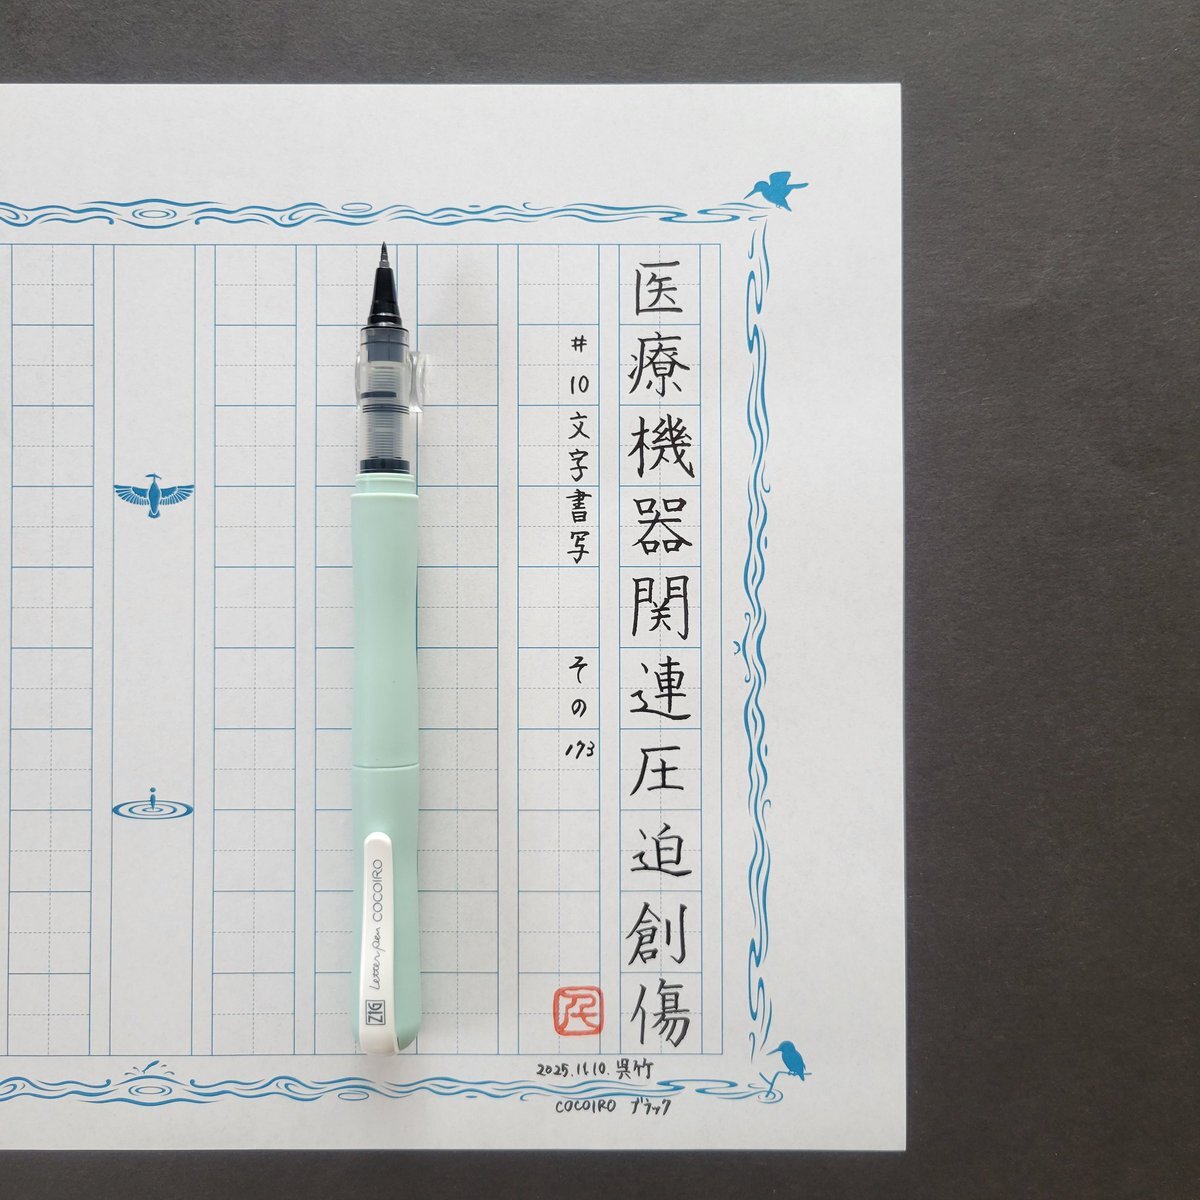 医療機器関連圧迫創傷
#10文字書写 その173
2025.11.10. 呉竹
COCOIRO ブラック
ZIG Letter pen COCOIRO